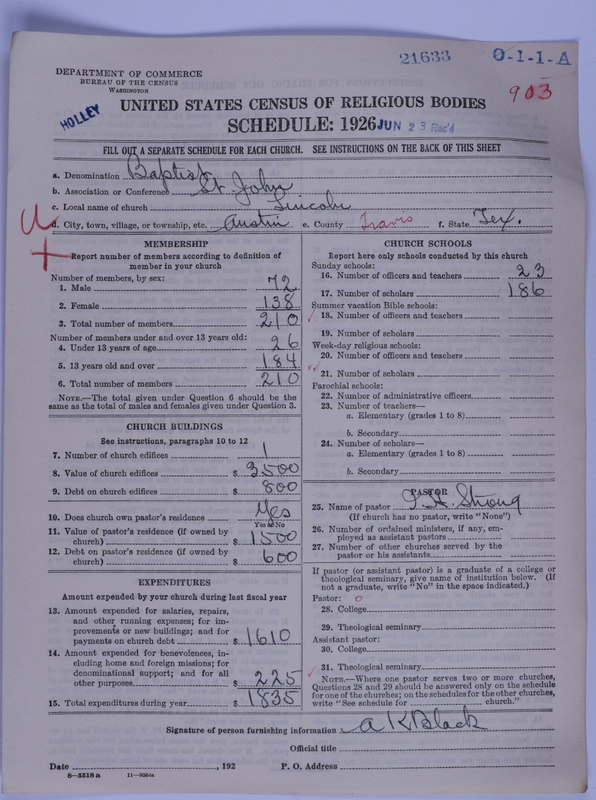 21633 0-1-1-A
DEPARTMENT OF COMMERCE
BUREAU OF THE CENSUS
WASHINGTON
903
HOLLEY
UNITED STATES CENSUS OF RELIGIOUS BODIES
SCHEDULE: 1926 JUN 23 Rec'd
FILL OUT A SEPARATE SCHEDULE FOR EACH CHURCH. SEE INSTRUCTIONS ON THE BACK OF THIS SHEET
a. Denomination Baptist
b. Association or Conference St. John
c. Local name of church Lincoln
d. City, town, village, or township, etc. Austin e. County Travis f. State Tex.
MEMBERSHIP
Report number of members according to definition of
member in your church
Number of members, by sex:
1. Male 72
2. Female 138
3. Total number of members 210
Number of members under and over 13 years old:
4. Under 13 years of age 26
5. 13 years old and over 184
6. Total number of members 210
NOTE.—The total given under Question 6 should be the
same as the total of males and females given under Question 3.
CHURCH BUILDINGS
See instructions, paragraphs 10 to 12
7. Number of church edifices 1
8. Value of church edifices $ 3500
9. Debt on church edifices $ 800
10. Does church own pastor's residence Yes
Yes or No
11. Value of pastor's residence (if owned by
church) $ 1500
12. Debt on pastor's residence (if owned by
church) $ 600
EXPENDITURES
Amount expended by your church during last fiscal year
13. Amount expended for salaries, repairs,
and other running expenses; for im-
provements or new buildings; and for
payments on church debt $ 1610
14. Amount expended for benevolences, in-
cluding home and foreign missions; for
denominational support; and for all
other purposes $ 225
15. Total expenditures during year $ 1835
CHURCH SCHOOLS
Report here only schools conducted by this church
Sunday schools:
16. Number of officers and teachers 23
17. Number of scholars 186
Summer vacation Bible schools:
18. Number of officers and teachers
19. Number of scholars
Week-day religious schools:
20. Number of officers and teachers
21. Number of scholars
Parochial schools:
22. Number of administrative officers
23. Number of teachers—
a. Elementary (grades 1 to 8)
b. Secondary
24. Number of scholars—
a. Elementary (grades 1 to 8)
b. Secondary
PASTOR
25. Name of pastor Strong
(If church has no pastor, write "None")
26. Number of ordained ministers, if any, em-
ployed as assistant pastors
27. Number of other churches served by the
pastor or his assistants
If pastor (or assistant pastor) is a graduate of a college or
theological seminary, give name of institution below. (If
not a graduate, write "No" in the space indicated.)
Pastor: 0
28. College
29. Theological seminary
Assistant pastor:
30. College
31. Theological seminary
NOTE.—Where one pastor serves two or more churches,
Questions 28 and 29 should be answered only on the schedule
for one of the churches; on the schedules for the other churches,
write "See schedule for church."
Signature of person furnishing information A K Black
Official title
Date , 192 P. O. Address
8-5518a 11-9084a